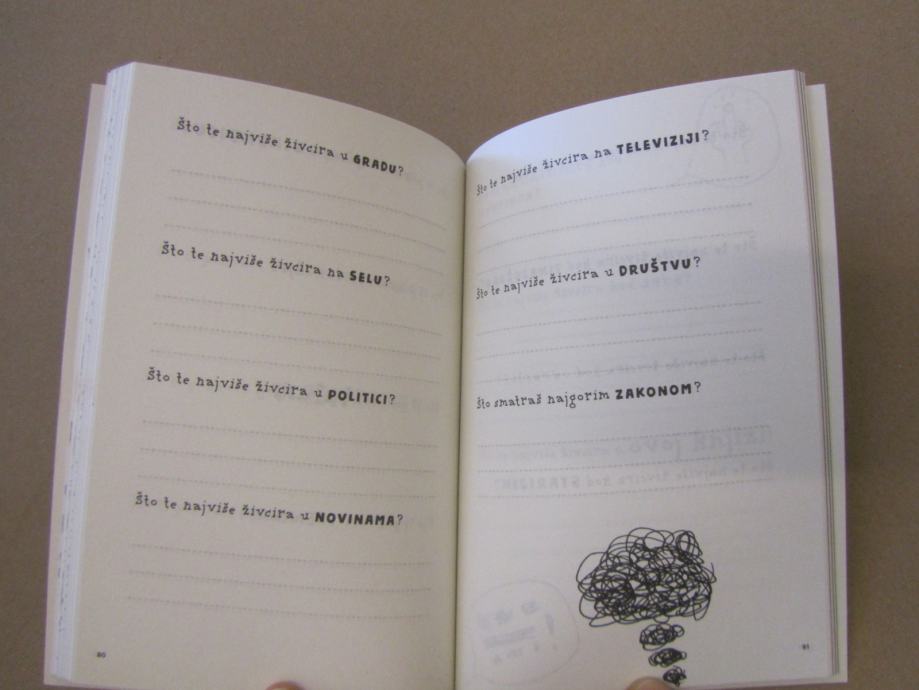 Što te najviše živcira u GRADU?
Što te najviše živcira na SELU?
Što te najviše živcira u POLITICI?
Što te najviše živcira u NOVINAMA?
80
Što te najviše živcira na TELEVIZIJI?
Što te najviše živcira u DRUŠTVU?
Što smatraš najgorim ZAKONOM?
81